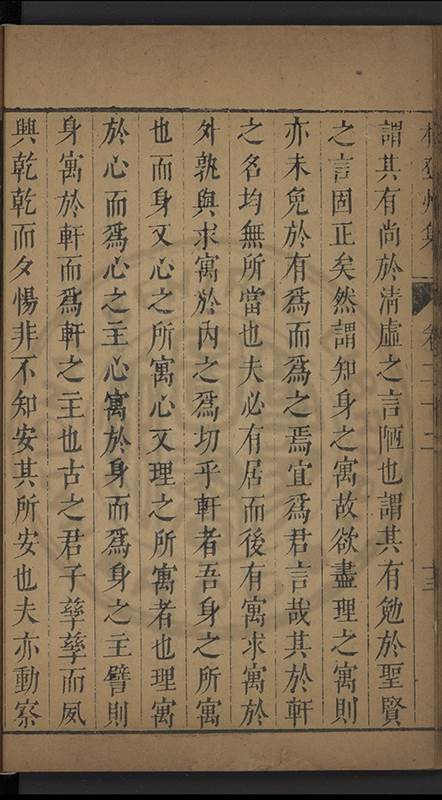 謂其有尚於清虛之言陋也謂其有勉於聖賢
之言固正矣然謂知身之寓故欲盡理之寓則
亦未免於有爲而爲之焉宜爲君言哉其於軒
之名均無所當也夫必有居而後有寓求寓於
外孰與求寓於內之爲切乎軒者吾身之所寓
也而身又心之所寓心又理之所寓者也理寓
於心而爲心之主心寓於身而爲身之主譬則
身寓於軒而爲軒之主也古之君子孳孳而夙
興乾乾而夕惕非不知安其所安也夫亦動察